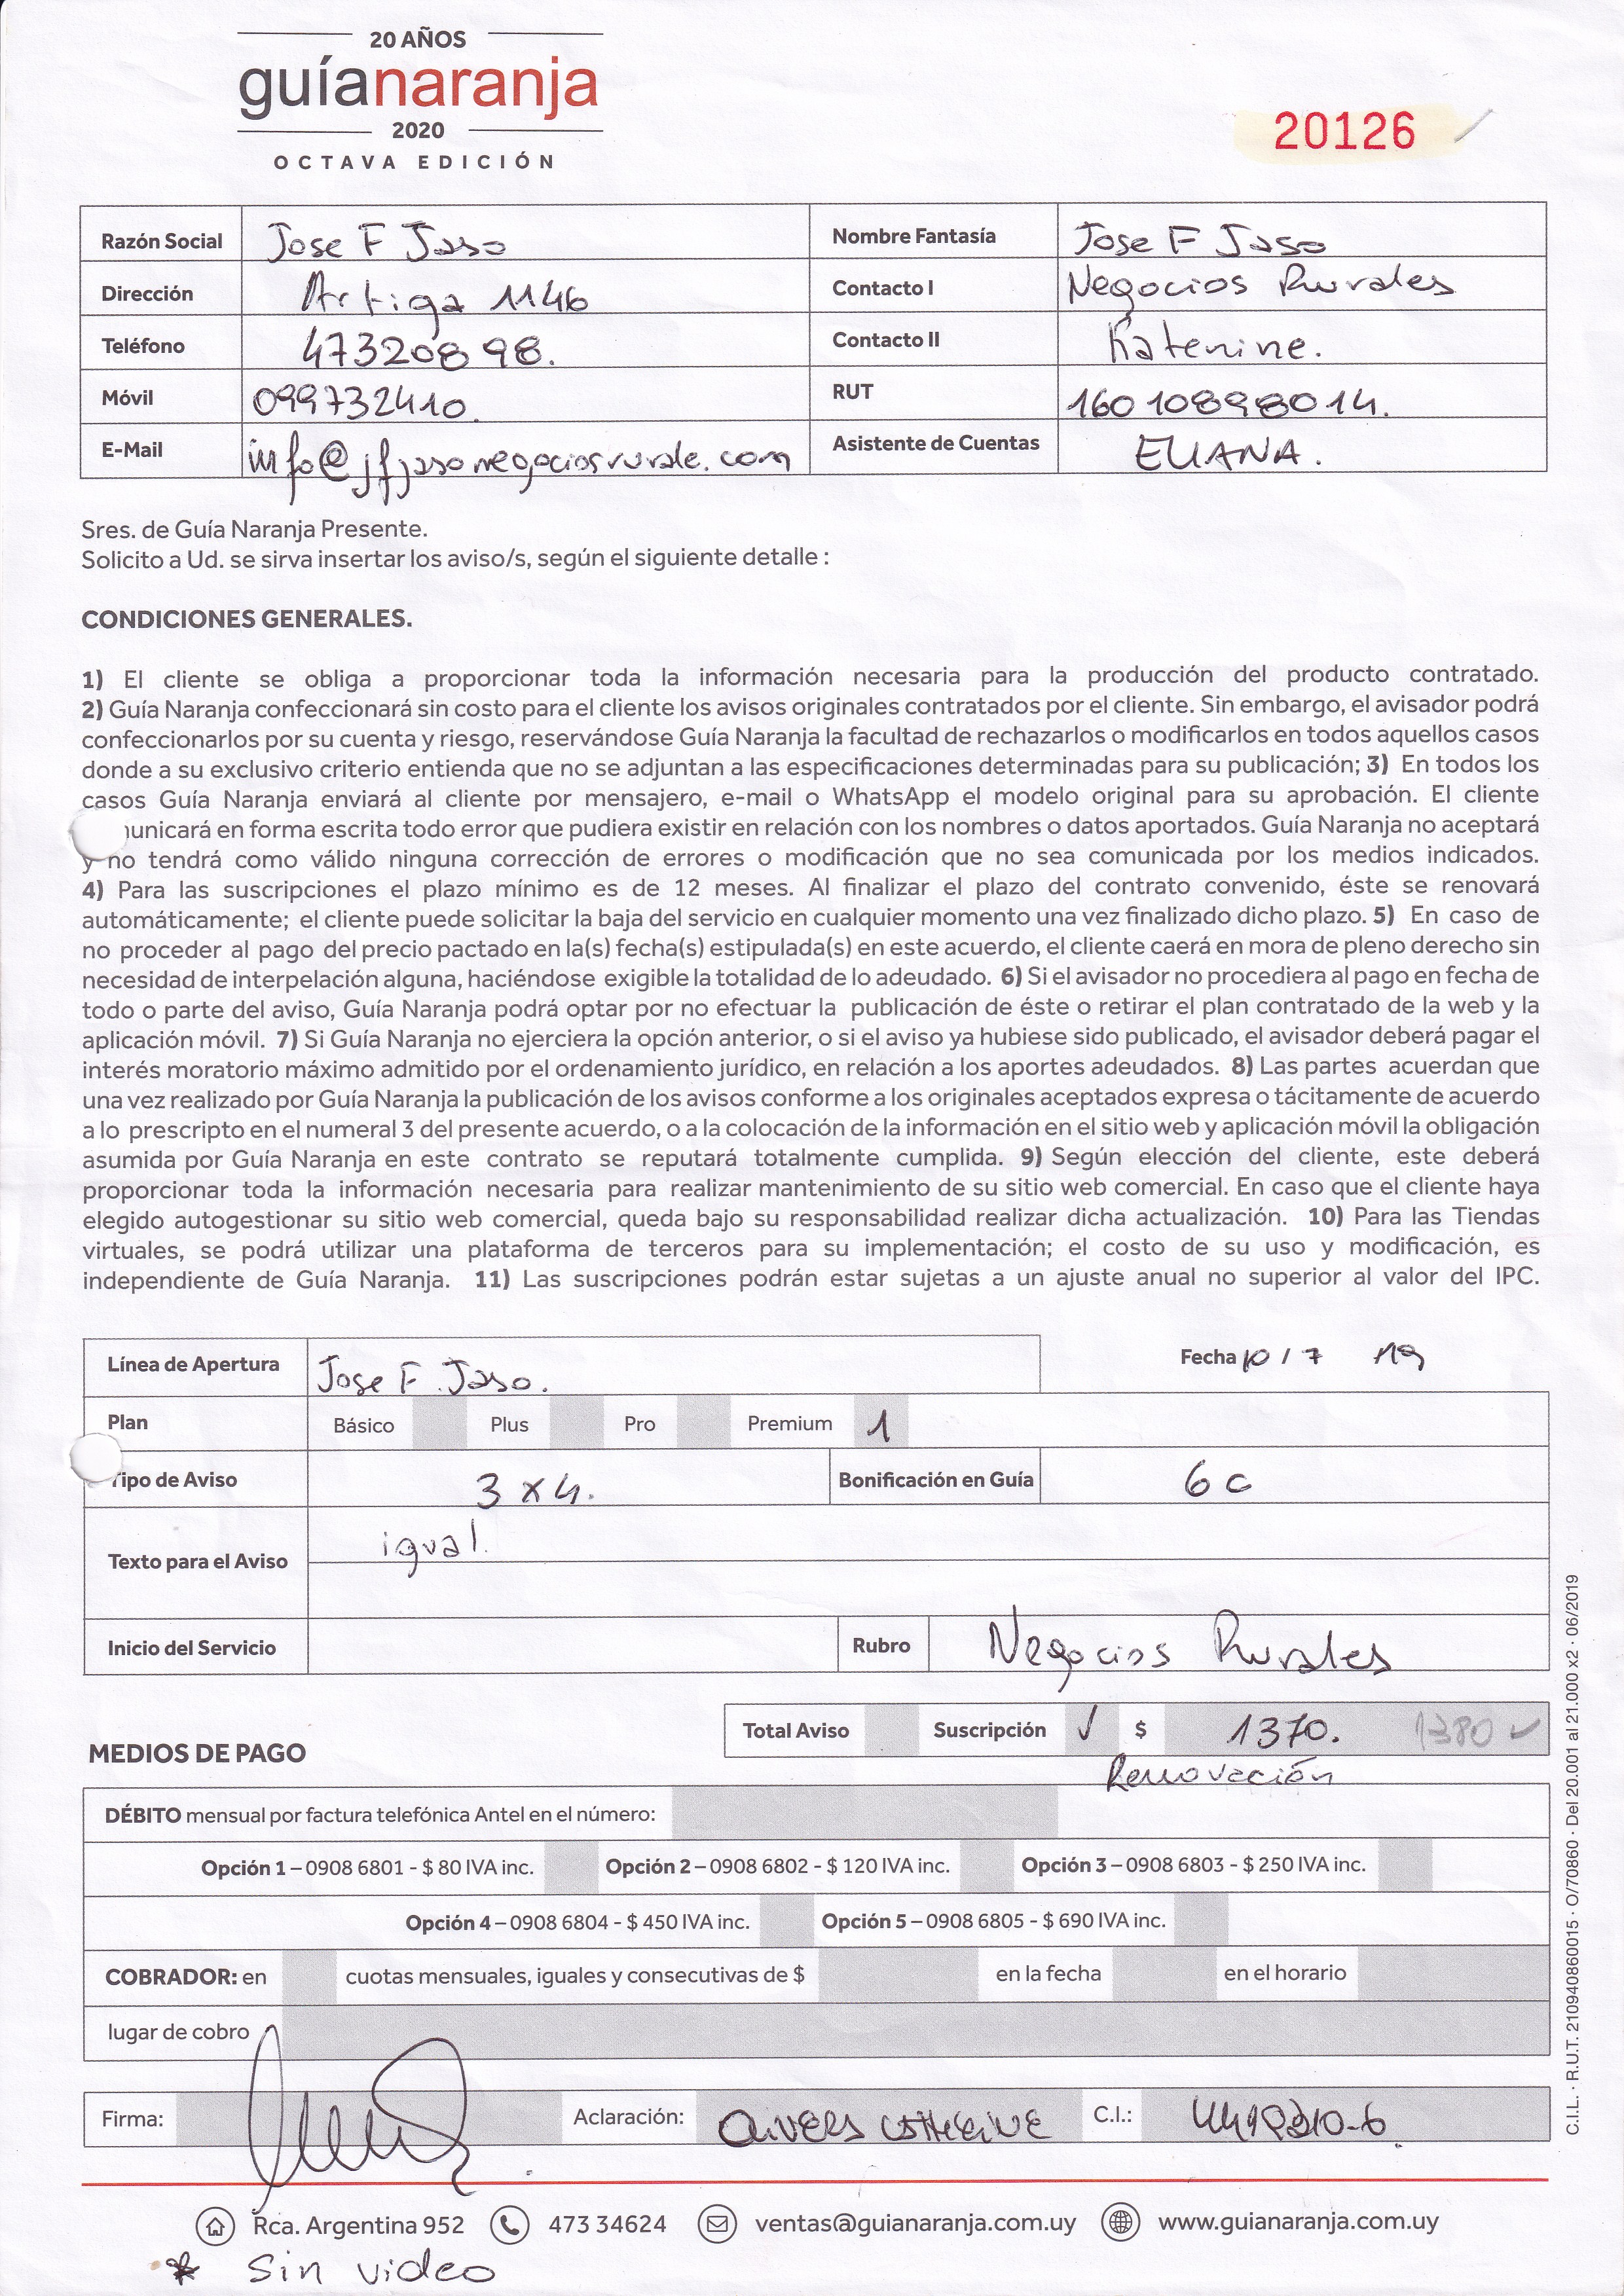 20 AÑOS
guíanaranja
2020
OCTAVA EDICIÓN
20126
Razón Social Jose F Jaso Nombre Fantasía Jose F Jaso
Dirección Artiga 1146 Contacto I Negocios Rurales
Teléfono 47320898. Contacto II Katerine.
Móvil 099732410. RUT 160108980014.
E-Mail info@jfjasonegociosrurale.com Asistente de Cuentas ELIANA.
Sres. de Guía Naranja Presente.
Solicito a Ud. se sirva insertar los aviso/s, según el siguiente detalle :
CONDICIONES GENERALES.
1) El cliente se obliga a proporcionar toda la información necesaria para la producción del producto contratado.
2) Guía Naranja confeccionará sin costo para el cliente los avisos originales contratados por el cliente. Sin embargo, el avisador podrá
confeccionarlos por su cuenta y riesgo, reservándose Guía Naranja la facultad de rechazarlos o modificarlos en todos aquellos casos
donde a su exclusivo criterio entienda que no se adjuntan a las especificaciones determinadas para su publicación; 3) En todos los
casos Guía Naranja enviará al cliente por mensajero, e-mail o WhatsApp el modelo original para su aprobación. El cliente
unicará en forma escrita todo error que pudiera existir en relación con los nombres o datos aportados. Guía Naranja no aceptará
y no tendrá como válido ninguna corrección de errores o modificación que no sea comunicada por los medios indicados.
4) Para las suscripciones el plazo mínimo es de 12 meses. Al finalizar el plazo del contrato convenido, éste se renovará
automáticamente; el cliente puede solicitar la baja del servicio en cualquier momento una vez finalizado dicho plazo. 5) En caso de
no proceder al pago del precio pactado en la(s) fecha(s) estipulada(s) en este acuerdo, el cliente caerá en mora de pleno derecho sin
necesidad de interpelación alguna, haciéndose exigible la totalidad de lo adeudado. 6) Si el avisador no procediera al pago en fecha de
todo o parte del aviso, Guía Naranja podrá optar por no efectuar la publicación de éste o retirar el plan contratado de la web y la
aplicación móvil. 7) Si Guía Naranja no ejerciera la opción anterior, o si el aviso ya hubiese sido publicado, el avisador deberá pagar el
interés moratorio máximo admitido por el ordenamiento jurídico, en relación a los aportes adeudados. 8) Las partes acuerdan que
una vez realizado por Guía Naranja la publicación de los avisos conforme a los originales aceptados expresa o tácitamente de acuerdo
a lo prescripto en el numeral 3 del presente acuerdo, o a la colocación de la información en el sitio web y aplicación móvil la obligación
asumida por Guía Naranja en este contrato se reputará totalmente cumplida. 9) Según elección del cliente, este deberá
proporcionar toda la información necesaria para realizar mantenimiento de su sitio web comercial. En caso que el cliente haya
elegido autogestionar su sitio web comercial, queda bajo su responsabilidad realizar dicha actualización. 10) Para las Tiendas
virtuales, se podrá utilizar una plataforma de terceros para su implementación; el costo de su uso y modificación, es
independiente de Guía Naranja. 11) Las suscripciones podrán estar sujetas a un ajuste anual no superior al valor del IPC.
Línea de Apertura Jose F. Jaso. Fecha 10 / 7 19
Plan Básico Plus Pro Premium 1
Tipo de Aviso 3 x 4. Bonificación en Guía 6 c
Texto para el Aviso igual.
Inicio del Servicio Rubro Negocios Rurales
Total Aviso Suscripción ✓ $ 1370. 1380 ✓
MEDIOS DE PAGO
Renovación
DÉBITO mensual por factura telefónica Antel en el número:
Opción 1 – 0908 6801 - $ 80 IVA inc. Opción 2 – 0908 6802 - $ 120 IVA inc. Opción 3 – 0908 6803 - $ 250 IVA inc.
Opción 4 – 0908 6804 - $ 450 IVA inc. Opción 5 – 0908 6805 - $ 690 IVA inc.
COBRADOR: en cuotas mensuales, iguales y consecutivas de $ en la fecha en el horario
lugar de cobro
Firma: Aclaración: C.I.:
Rca. Argentina 952 473 34624 ventas@guianaranja.com.uy www.guianaranja.com.uy
* Sin video
C.I.L. · R.U.T. 210940860015 · O/70860 · Del 20.001 al 21.000 x2 · 06/2019